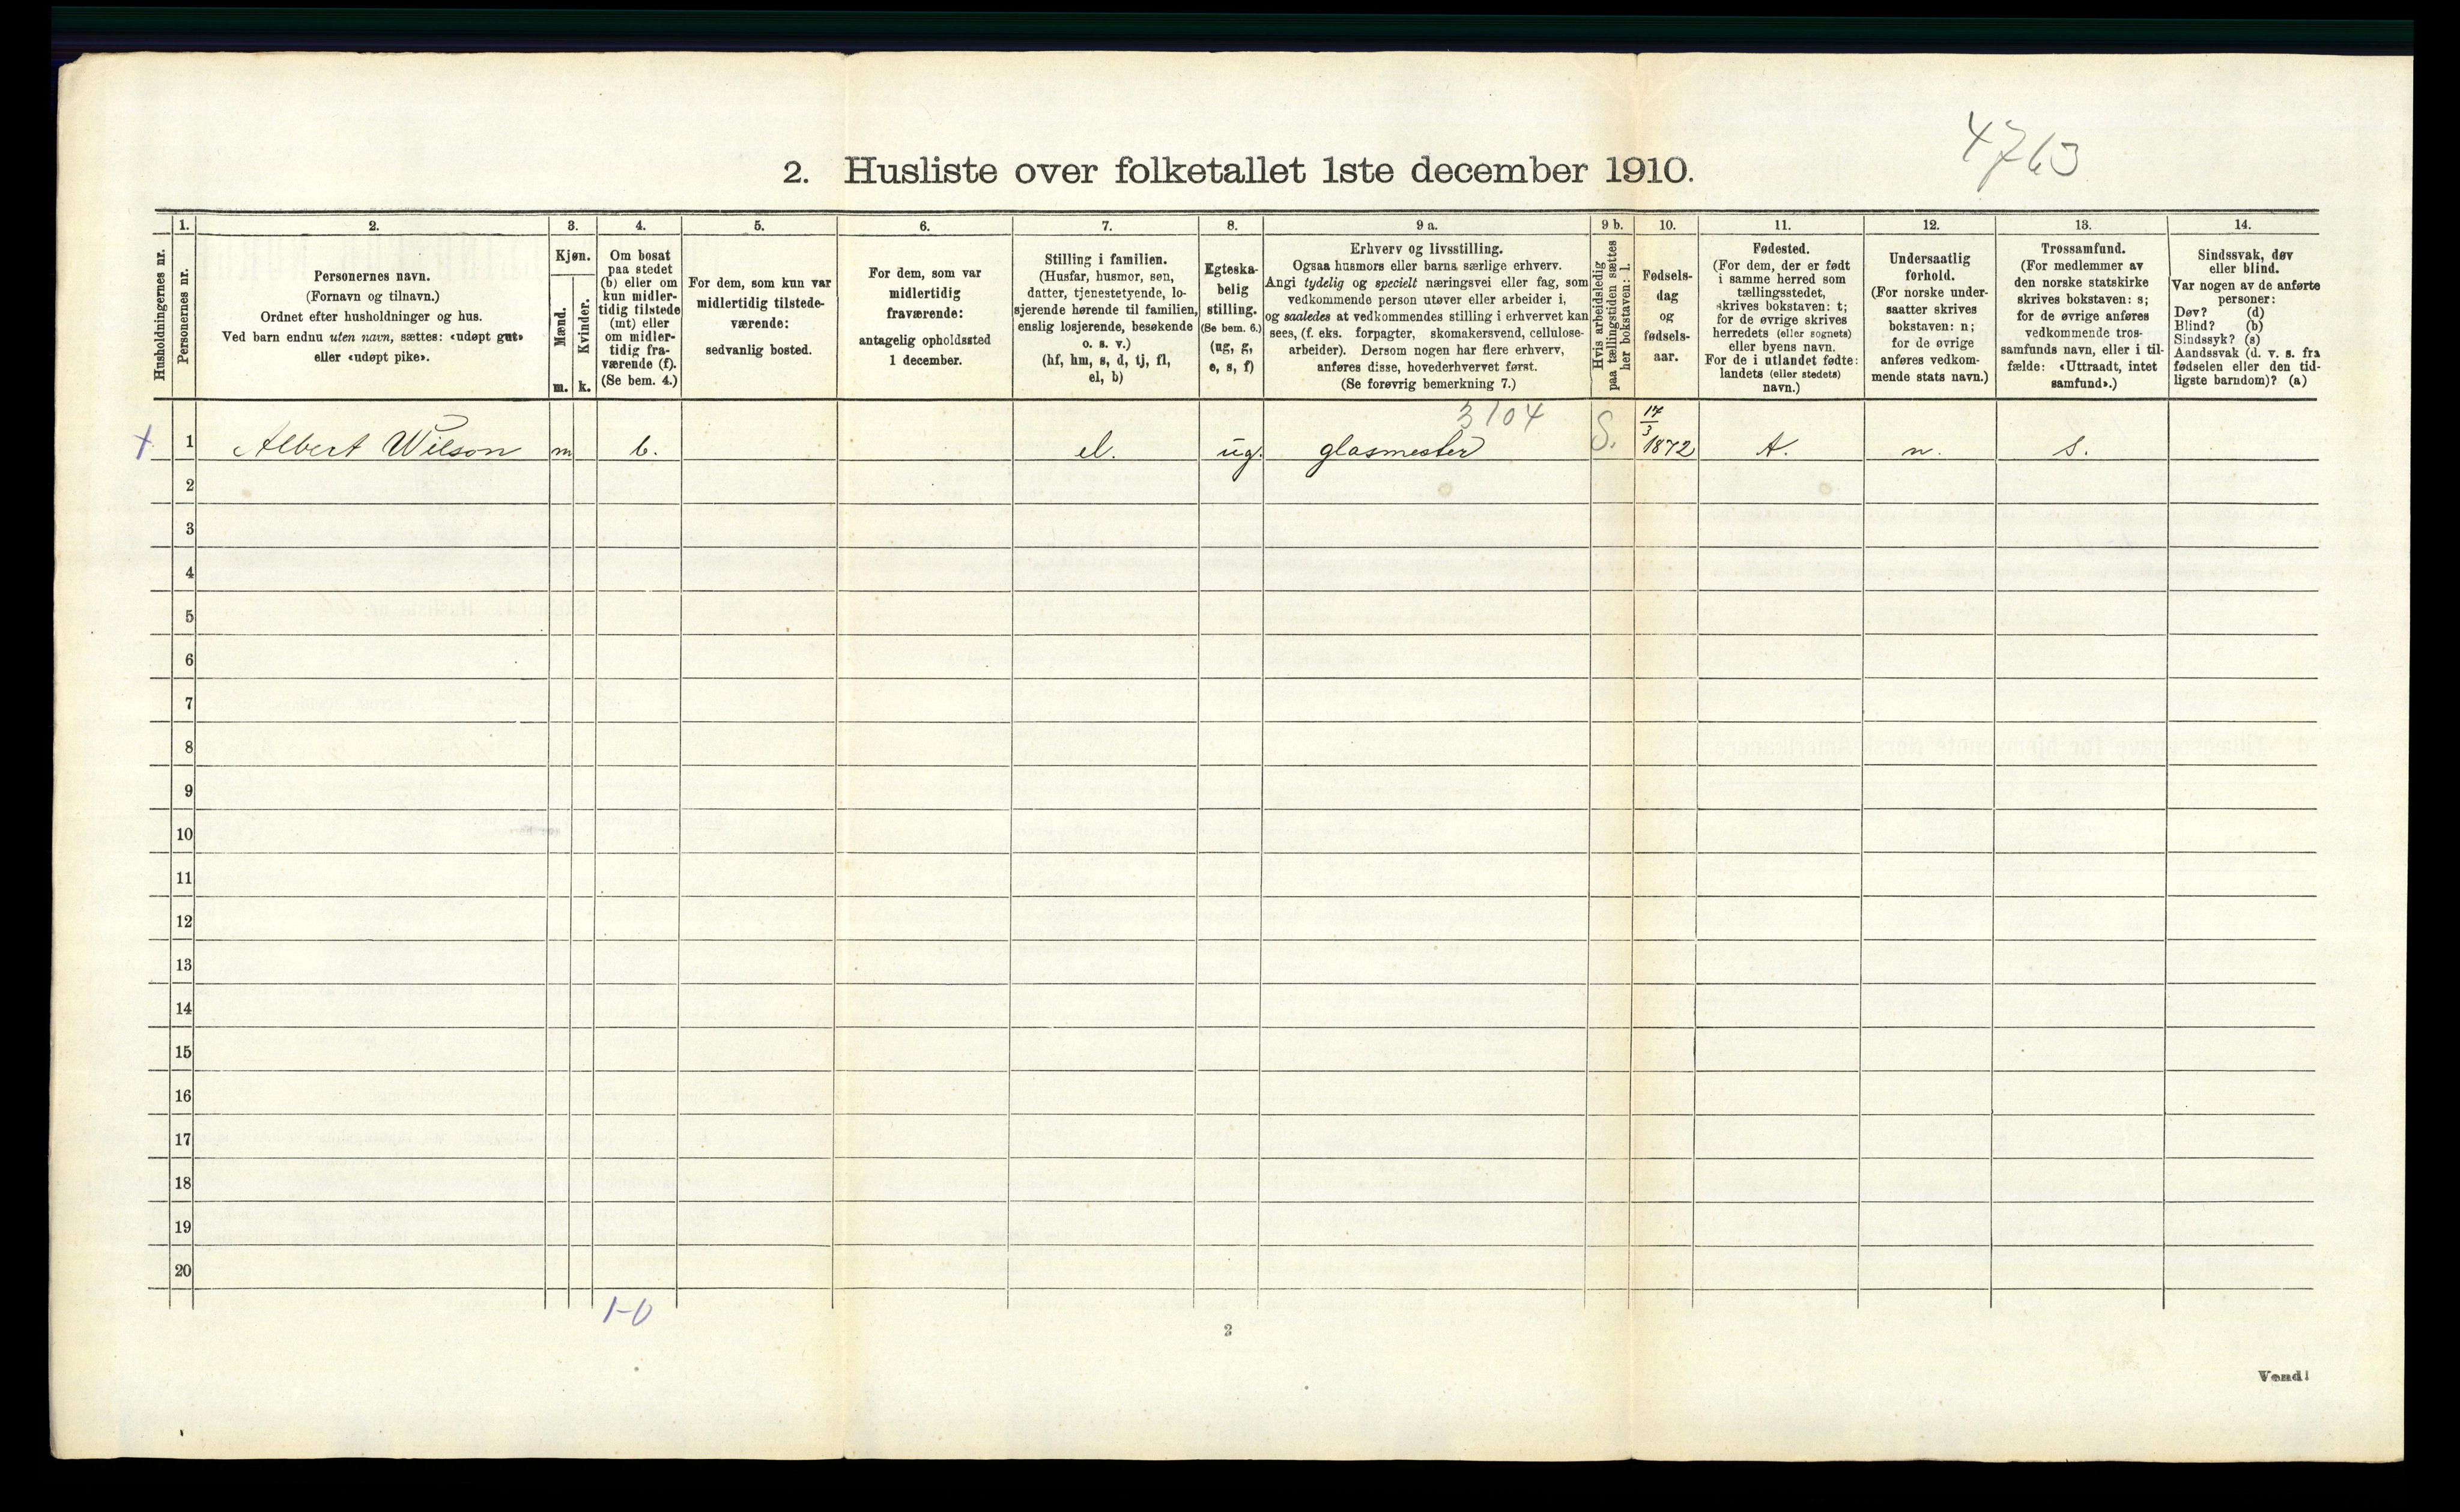 4763
2. Husliste over folketallet 1ste december 1910.
Husholdningernes nr.
1.
Personernes nr.
2.
Personernes navn.
(Fornavn og tilnavn.)
Ordnet efter husholdninger og hus.
Ved barn endnu uten navn, sættes: «udøpt gut»
eller «udøpt pike».
3.
Kjøn.
Mænd.
Kvinder.
m.
k.
4.
Om bosat
paa stedet
(b) eller om
kun midler-
tidig tilstede
(mt) eller
om midler-
tidig fra-
værende (f).
(Se bem. 4.)
5.
For dem, som kun var
midlertidig tilstede-
værende:
sedvanlig bosted.
6.
For dem, som var
midlertidig
fraværende:
antagelig opholdssted
1 december.
7.
Stilling i familien.
(Husfar, husmor, søn,
datter, tjenestetyende, lo-
sjerende hørende til familien,
enslig losjerende, besøkende
o. s. v.)
(hf, hm, s, d, tj, fl,
el, b)
8.
Egteska-
belig
stilling.
(Se bem. 6.)
(ug, g,
e, s, f)
9 a.
Erhverv og livsstilling.
Ogsaa husmors eller barns særlige erhverv.
Angi tydelig og specielt næringsvei eller fag, som
vedkommende person utøver eller arbeider i,
og saaledes at vedkommendes stilling i erhvervet kan
sees, (f. eks. forpagter, skomakersvend, cellulose-
arbeider). Dersom nogen har flere erhverv,
anføres disse, hovederhvervet først.
(Se forøvrig bemerkning 7.)
9 b.
Hvis arbeidsledig
paa tællingstiden sættes
her bokstaven: l.
10.
Fødsels-
dag
og
fødsels-
aar.
11.
Fødested.
(For dem, der er født
i samme herred som
tællingsstedet,
skrives bokstaven: t;
for de øvrige skrives
herredets (eller sognets)
eller byens navn.
For de i utlandet fødte:
landets (eller stedets)
navn.)
12.
Undersaatlig
forhold.
(For norske under-
saatter skrives
bokstaven: n;
for de øvrige
anføres vedkom-
mende stats navn.)
13.
Trossamfund.
(For medlemmer av
den norske statskirke
skrives bokstaven: s;
for de øvrige anføres
vedkommende tros-
samfunds navn, eller i til-
fælde: «Uttraadt, intet
samfund».)
14.
Sindssvak, døv
eller blind.
Var nogen av de anførte
personer:
Døv? (d)
Blind? (b)
Sindssyk? (s)
Aandssvak (d. v. s. fra
fødselen eller den tid-
ligste barndom)? (a)
3104
+ 1 Albert Wilson m b. el. ug. glasmester S. 17/3 1872 t. n. s.
2
3
4
5
6
7
8
9
10
11
12
13
14
15
16
17
18
19
20
1-0
2
Vend!